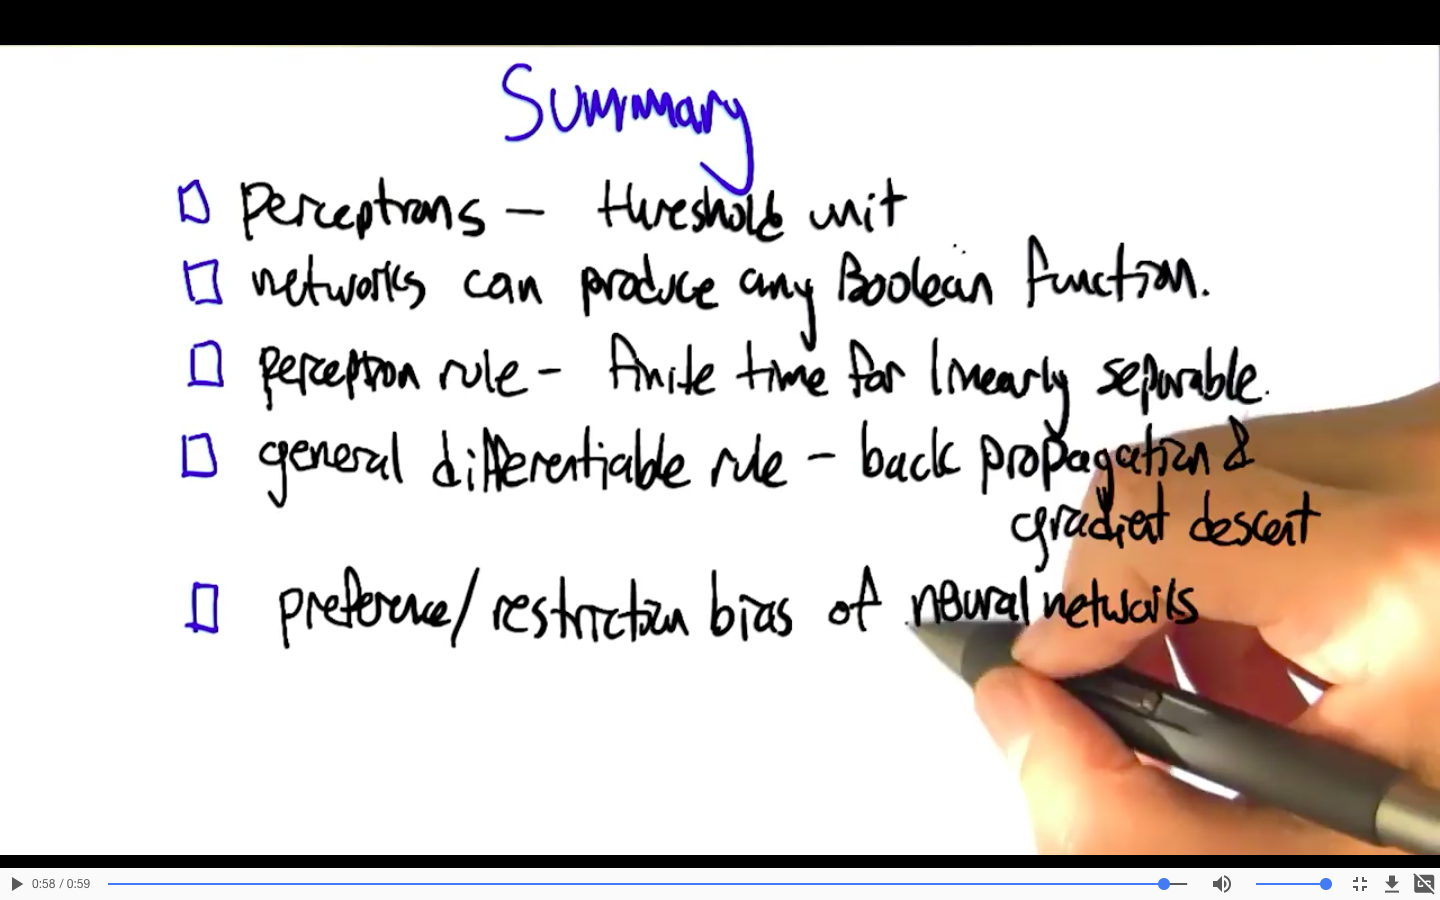 Summary
perceptrons - threshold unit
networks can produce any Boolean function.
perceptron rule - finite time for linearly separable.
general differentiable rule - back propagation &
gradient descent
preference/restriction bias of neural networks
0:58 / 0:59